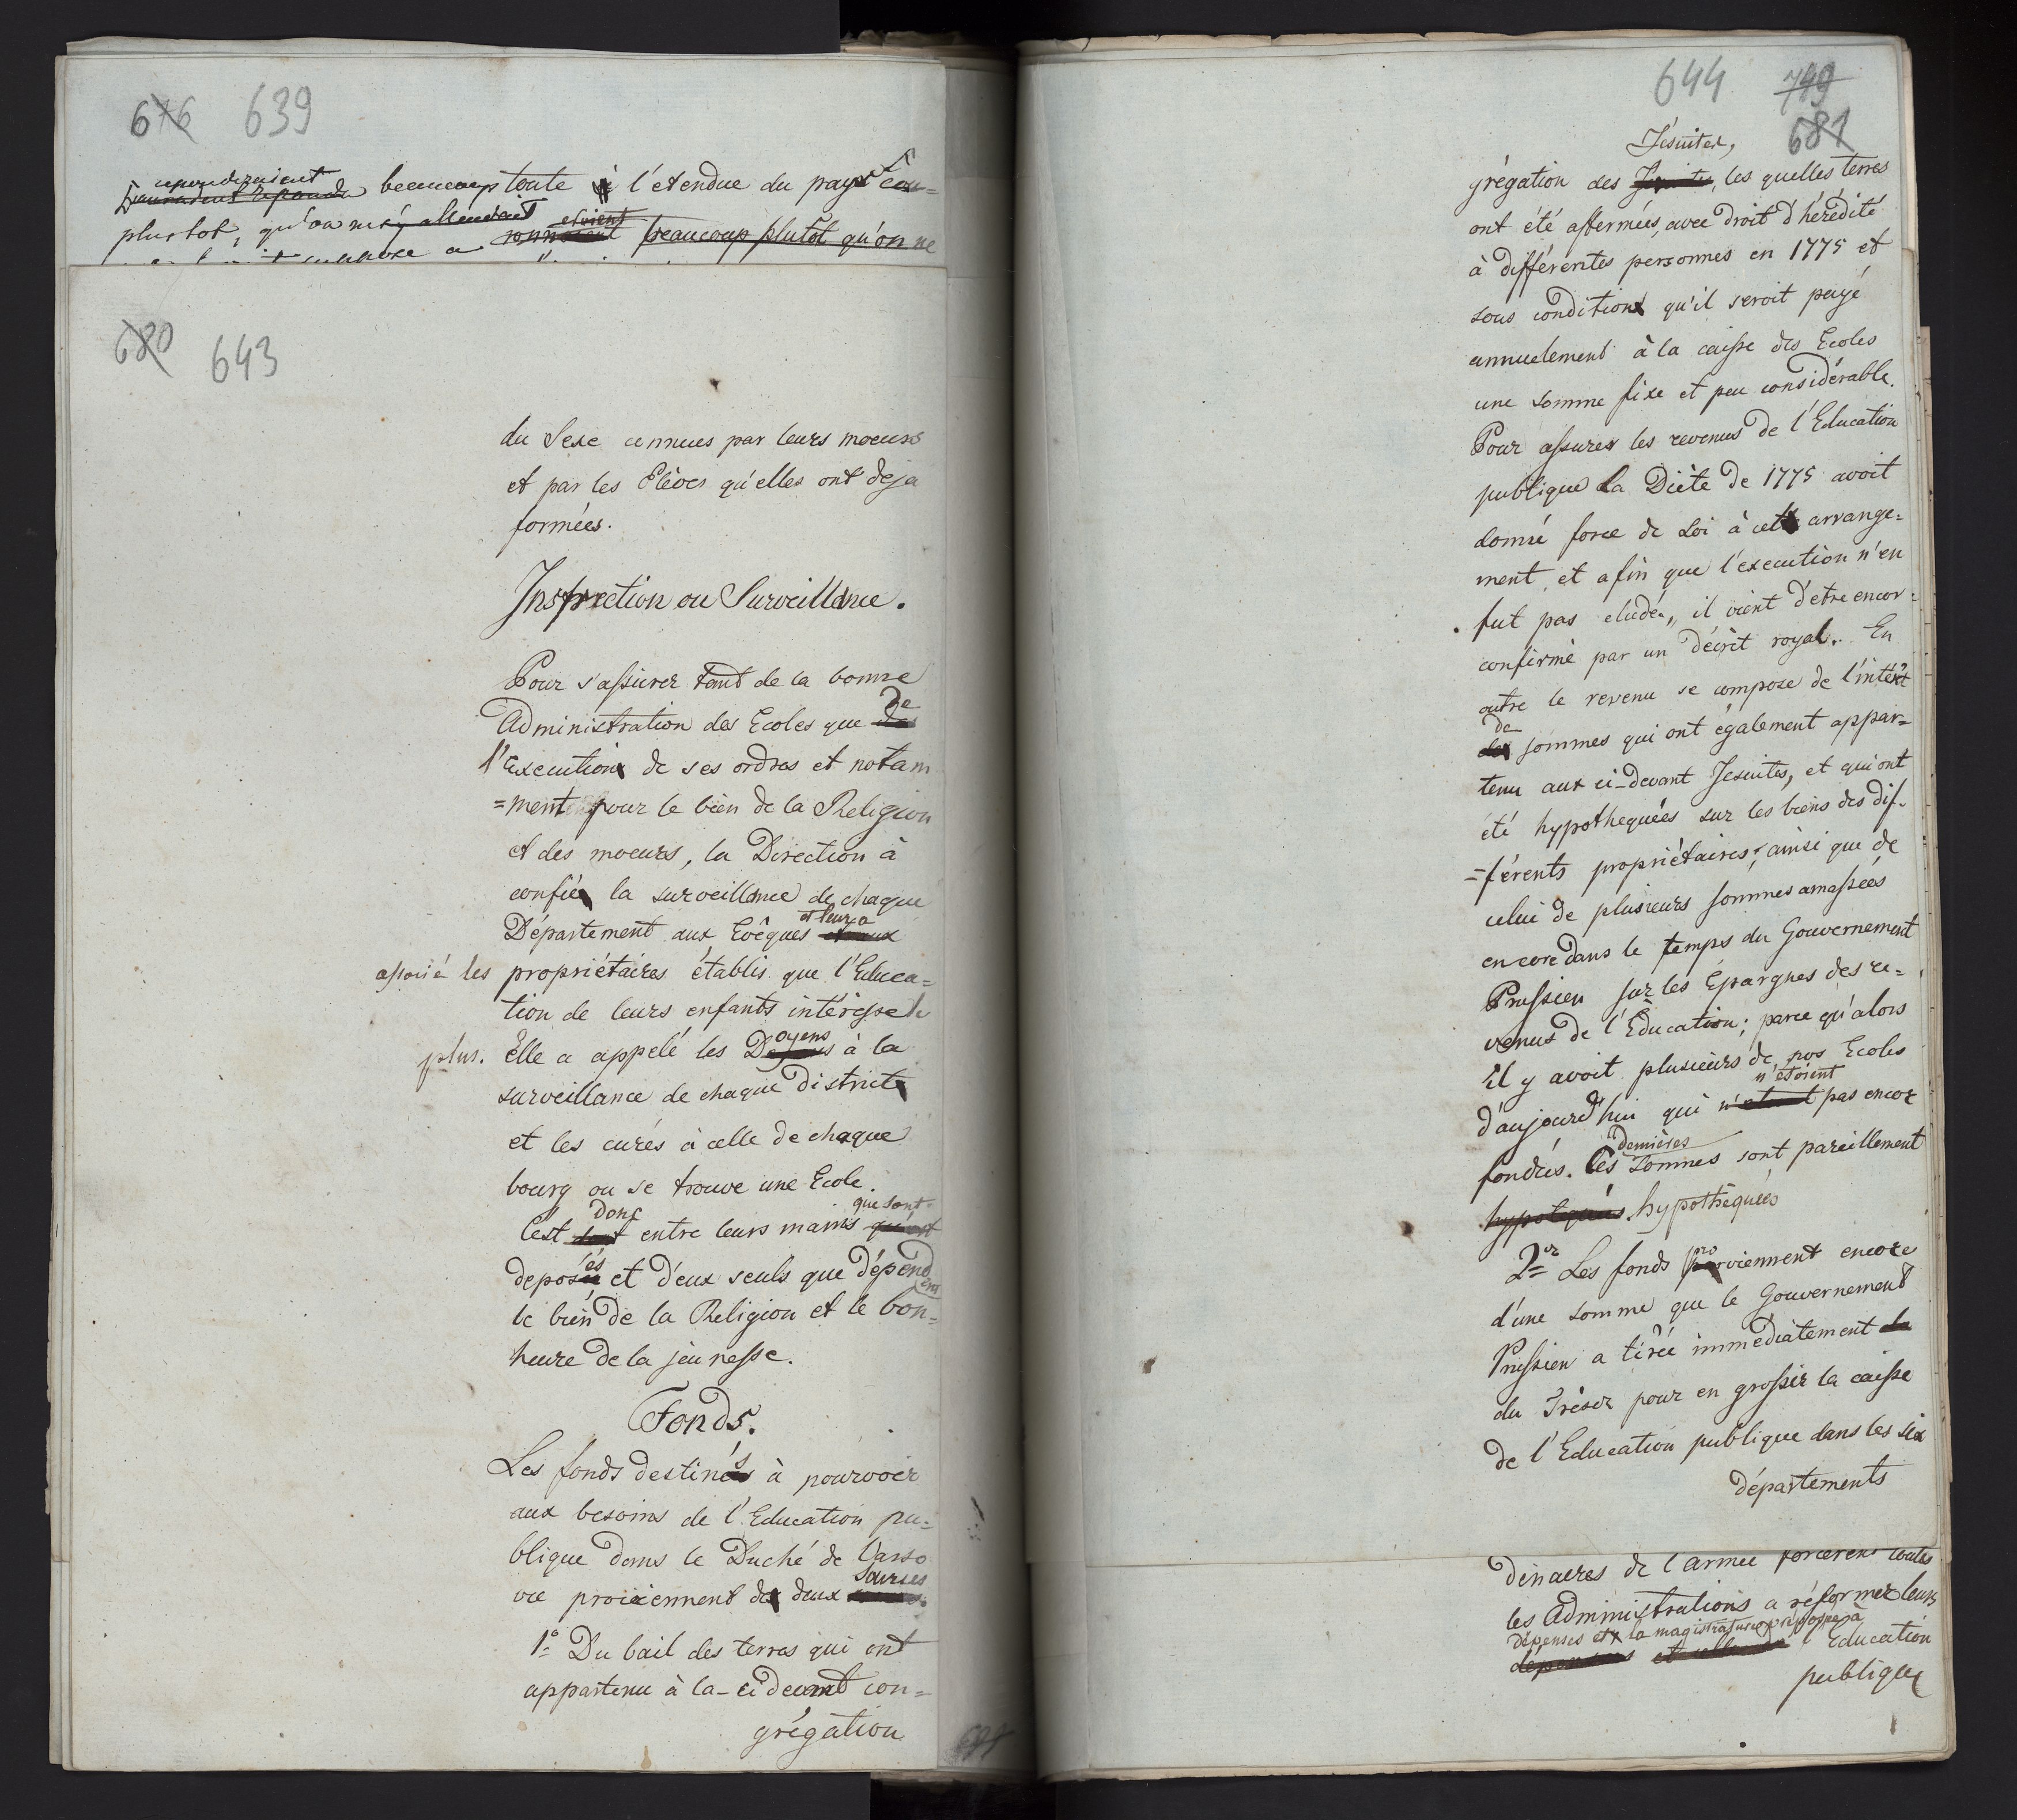 676 639
repondraient
beaucoup toute à l'etendue du pays
plustot, qu'on n'y attendait etoient beaucoup plutot qu'on ne
680 643
du Sexe connues par leurs moeurs
et par les Elèves qu'elles ont deja
formées.
Inspection ou Surveillance.
Pour s'assurer tant de la bonne
Administration des Ecoles que des de
l'execution de ses ordres et notam
=ment pour le bien de la Religion
et des moeurs, la Direction à
confié la surveillance de chaque
et leur a
Département aux Evêques et aux
associé les propriétaires établis que l'Educa=
tion de leurs enfants intéresse le
plus. Elle a appelé les Doyens à la
surveillance de chaque district
et les curés à celle de chaque
bourg ou se trouve une Ecole.
donc que sont
C'est entre leurs mains qu'est
deposés et d'eux seuls que dépendent
le bien de la Religion et le bon=
heure de la jeunesse.
Fonds.
Les fonds destinés à pourvoir
aux besoins de l'Education pu=
blique dans le Duché de Varso
Sources
vie proviennent de deux
1º Du bail des terres qui ont
appartenu à la-ci devant con=
grégation
644 749
681
Jésuites,
grégation des les quelles terres
ont été affermées, avec droit d'hérédité
à différentes personnes en 1775 et
sous condition qu'il seroit payé
annuelement à la caisse des Ecoles
une somme fixe et peu considérable.
Pour assurer les revenus de l'Education
publique la Diète de 1775 avoit
donné force de Loi à cet arrange=
ment, et afin que l'execution n'en
fut pas eludée, il vient d'etre encor=
confirmé par un décrèt royal. En
outre le revenu se compose de l'intérèt
de
des sommes qui ont également appar=
tenu aux ci-devant Jesuites, et qui ont
été hypothequées sur les biens des dif-
=férents propriétaires; ainsi que de
celui de plusieurs sommes amassées
encore dans le temps du Gouvernement
Prussien sur les Epargnes des re=
venus de l'Education; parce qu'alors
il y avoit plusieurs de nos Ecoles
n'etoient
d'aujourd'hui qui n'etant pas encor
dernières
fondées. Ces sommes sont pareillement
hypotequées hypothéquées
2º Les fonds proviennent encore
d'une somme que le Gouvernement
Prussien a tirée immédiatement de
du Trésor pour en grossir la caisse
de l'Education publique dans les six
départements
dinaires de l'armée forcerent toutes
les Administrations a réformer leurs
dépenses et la magistrature préposée à
dépenses et celle de l'Education
publique